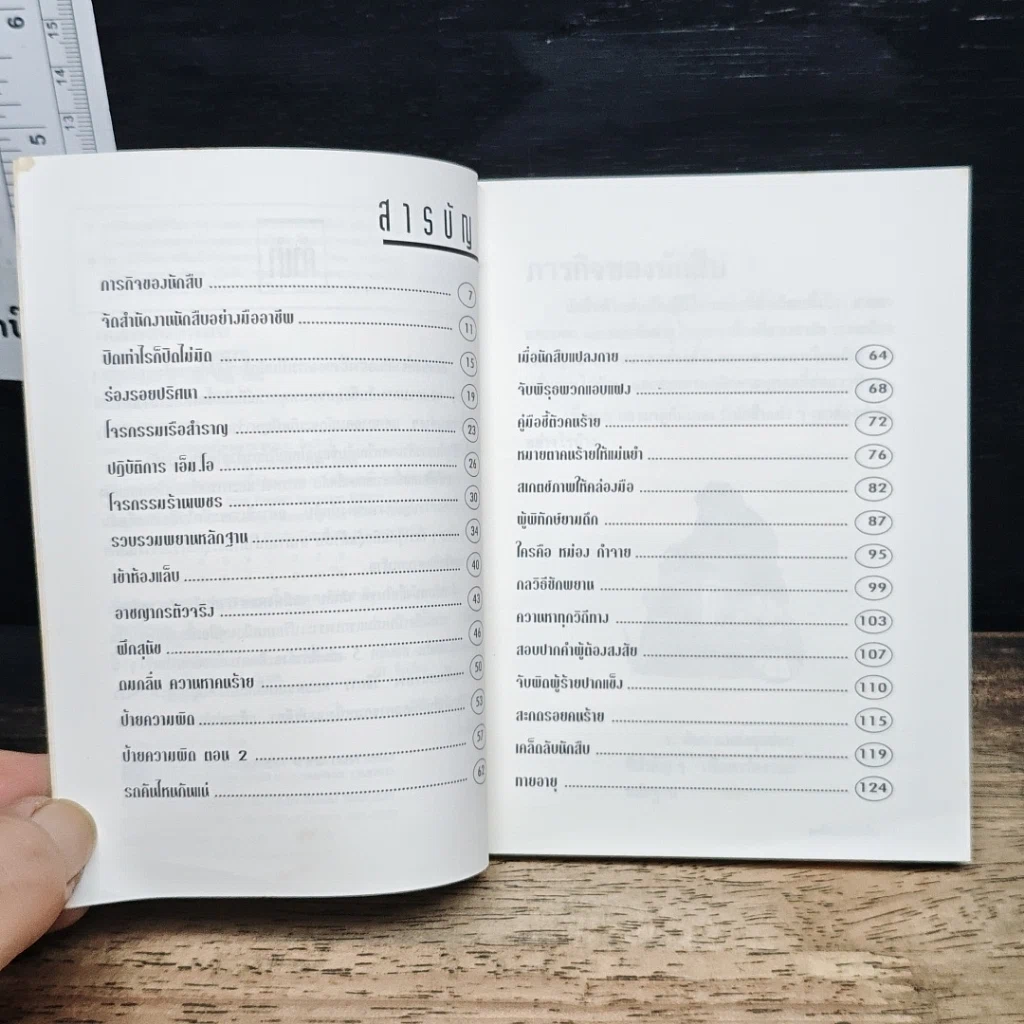 สารบัญ
ภารกิจของนักสืบ 7
จัดสำนักงานนักสืบอย่างมืออาชีพ 11
ปิดเท่าไรก็ปิดไม่มิด 15
ร่องรอยปริศนา 19
โจรกรรมเรือสำราญ 23
ปฏิบัติการ เอ็ม.โอ 26
โจรกรรมร้านเพชร 30
รวบรวมพยานหลักฐาน 34
เข้าห้องแล็บ 40
อาชญากรตัวจริง 43
ฝึกสุนัข 46
ดมกลิ่น ควานหาคนร้าย 50
ป้ายความผิด 53
ป้ายความผิด ตอน 2 57
รถคันไหนกันแน่ 62
เมื่อนักสืบแปลงกาย 64
จับพิรุธพวกแอบแฝง 68
คู่มือชี้ตัวคนร้าย 72
หมายตาคนร้ายให้แม่นยำ 76
สเกตช์ภาพให้คล่องมือ 82
ผู้พิทักษ์ยามดึก 87
ใครคือ หม่อง กำจาย 95
กลวิธีซักพยาน 99
ควานหาทุกวิถีทาง 103
สอบปากคำผู้ต้องสงสัย 107
จับผิดผู้ร้ายปากแข็ง 110
สะกดรอยคนร้าย 115
เคล็ดลับนักสืบ 119
ทายอายุ 124
6
15
14
5
13